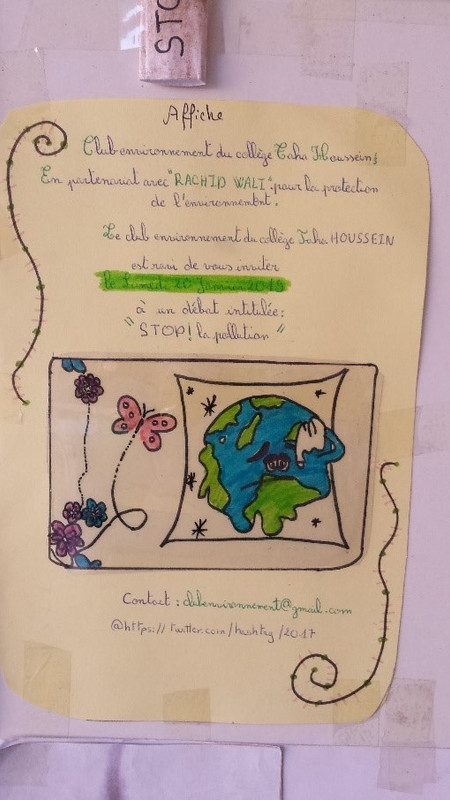 STO
Affiche
Club environnement du collège Taha Houssein;
En partenariat avec "RACHID WALI" pour la protection
de l'environnement.
Le club environnement du collège Taha HOUSSEIN
est ravi de vous inviter
le Samedi 20 Janvier 2018
à un débat intitulée:
"STOP! la pollution"
Contact : clubenvironnement@gmail.com
@https://twitter.com/hashtag/2017